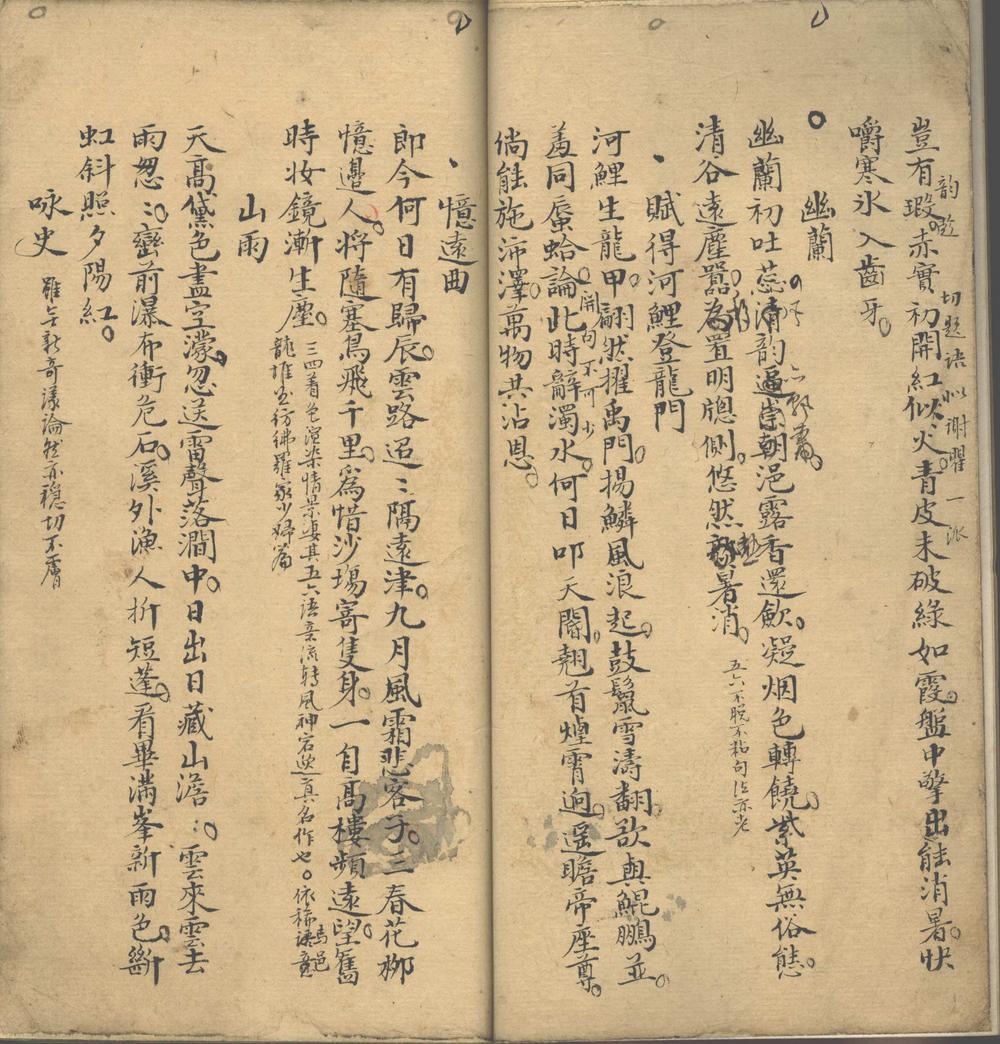 豈有瑕赤實初開紅似火青皮未破綠如霞盤中擎出能消暑快
切題語似謝瞿一派
嚼寒氷入齒牙
幽蘭
幽蘭初吐蕊清韵遍崇朝浥露香還歛凝烟色轉饒紫英無俗態
清谷遠塵嚣為置明牎側悠然暑消
五六不脫不粘句法亦老
賦得河鯉登龍門
河鯉生龍甲翩然擢禹門揚鱗風浪起鼓鬣雪濤翻欲與鯤鵬並
開句不可少
羞同蜃蛤論此時辭濁水何日叩天閽翹首煙霄逈遥瞻帝座尊
倘能施沛澤萬物共沾恩
憶遠曲
即今何日有歸辰雲路迢〻隔遠津九月風霜悲客子三春花柳
憶邉人將隨塞鳥飛千里爲惜沙塲寄隻身一自高樓頻遠望舊
時妝鏡漸生塵
三四着色渲染情景淒其五六語意流轉風神宕逸真名作也
山雨
天高黛色盡空濛忽送雷聲落澗中日出日藏山澹〻雲來雲去
雨忽〻巒前瀑布衝危石溪外漁人折短蓬看畢滿峯新雨色斷
虹斜照夕陽紅
咏史
雖無新奇議論然亦穩切不膚